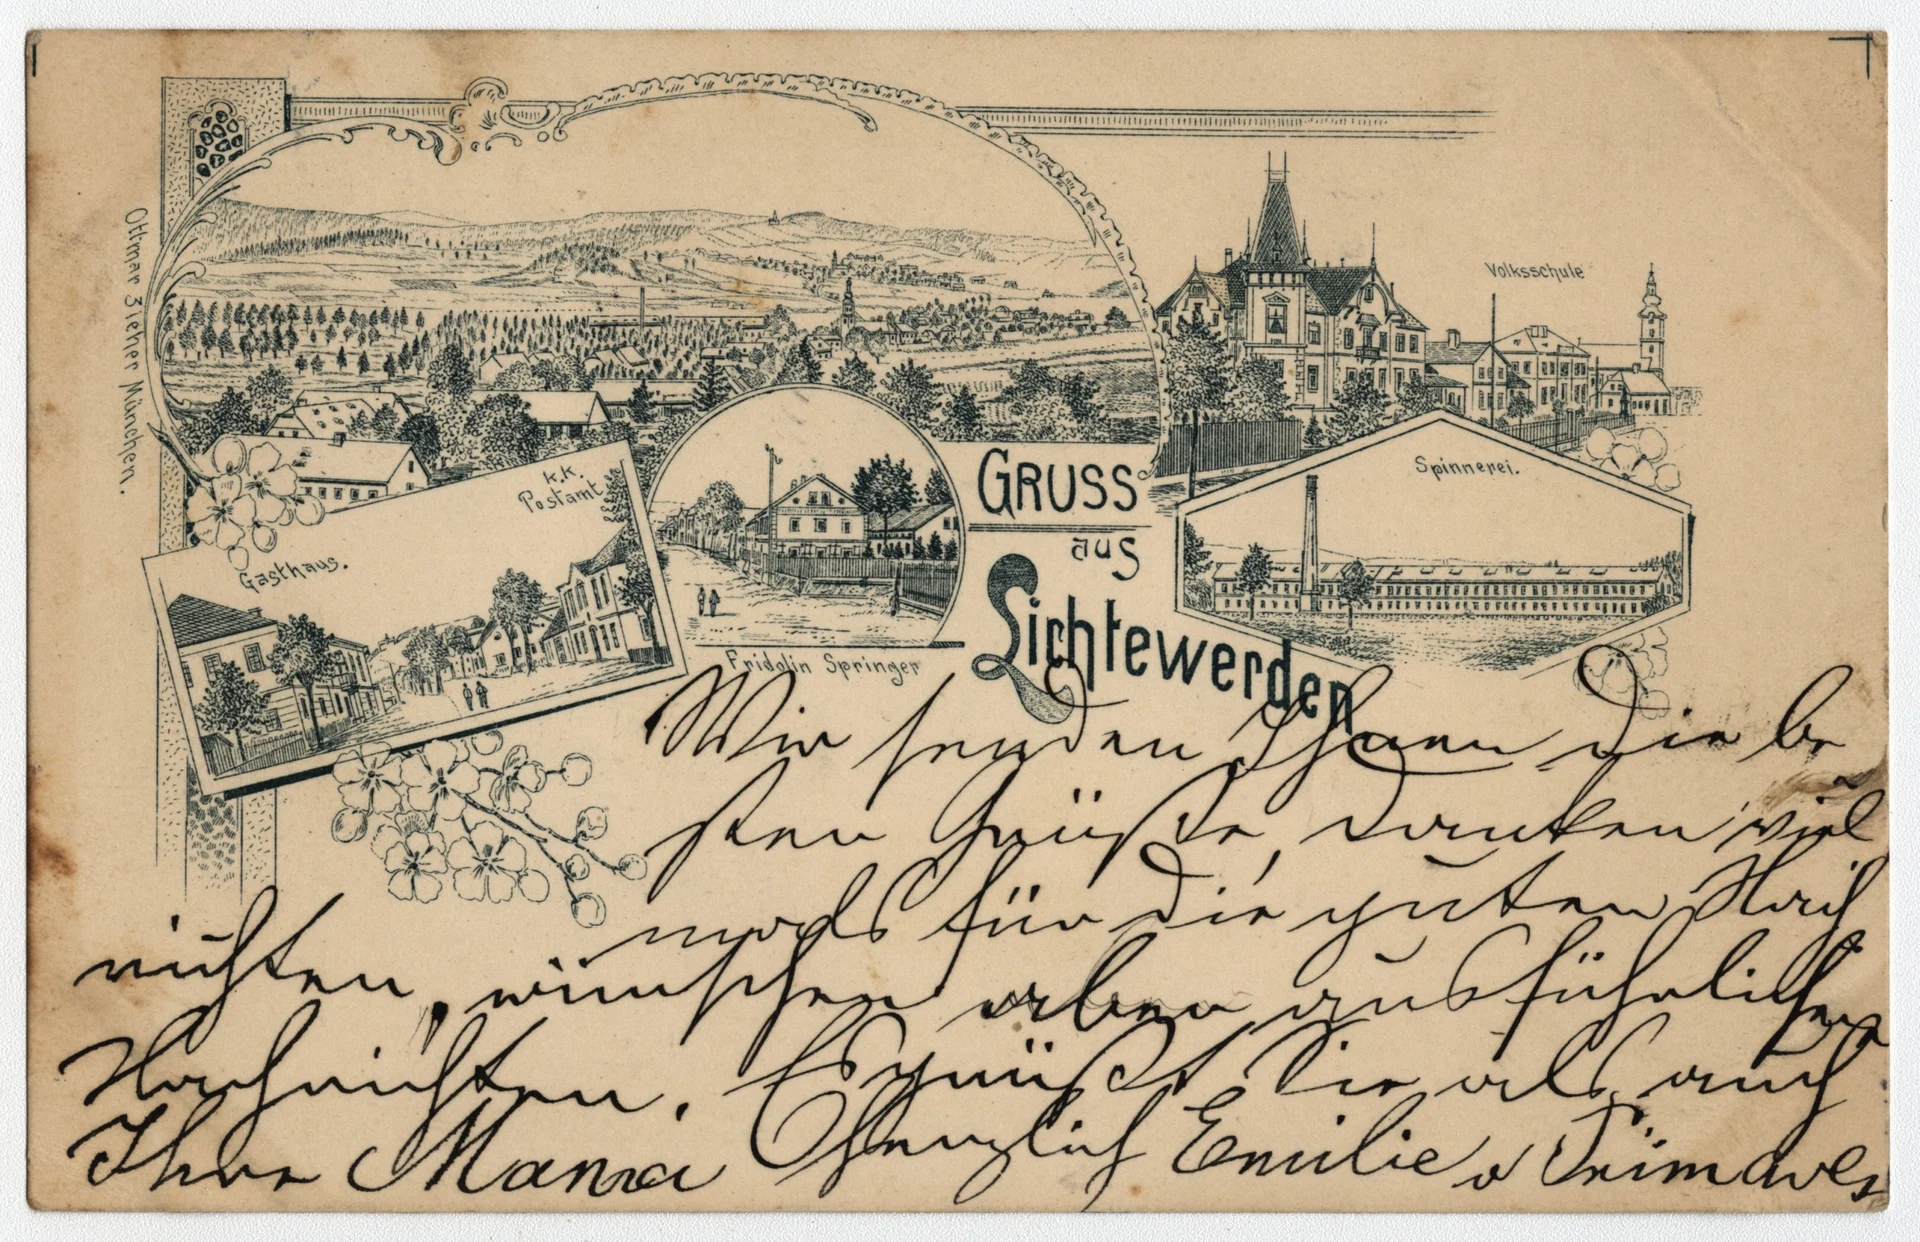 Ottmar Zieher München.
Volksschule
k.k.
Postamt
Gasthaus.
Fridolin Springer
GRUSS
aus
Lichtewerden
Spinnerei.
Wir senden Ihnen die be
sten Grüße, danken viel
mals für die guten Nach
richten, wünschen aber ausführlichere
Nachrichten. Es grüßt Sie als auch
Ihre Mama Herzlich Emilie